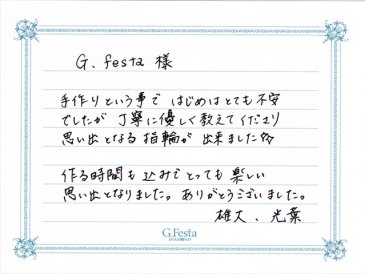 G. festa 様
手作りという事で はじめはとても不安
でしたが 丁寧に優しく教えてくださり
思い出となる指輪が 出来ました☆☆
作る時間も込みでとっても楽しい
思い出となりました。ありがとうございました。
雄大、光葉
G.Festa
DIAMOND